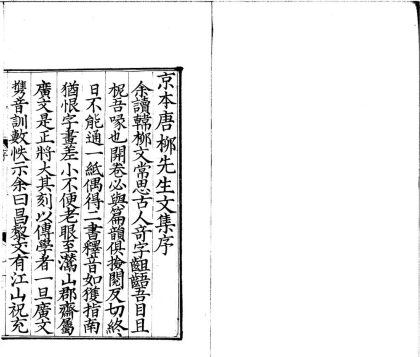 京本唐柳先生文集序
余讀韓柳文常思古人奇字齟齬吾目且
柅吾喙也開卷必與篇韻俱撿閱反切終
日不能通一紙偶得二書釋音如獲指南
猶恨字畫差小不便老眼至灊山郡齋屬
廣文是正將大其刻以傳學者一旦廣文
擕音訓數帙示余曰昌黎文有江山祝充